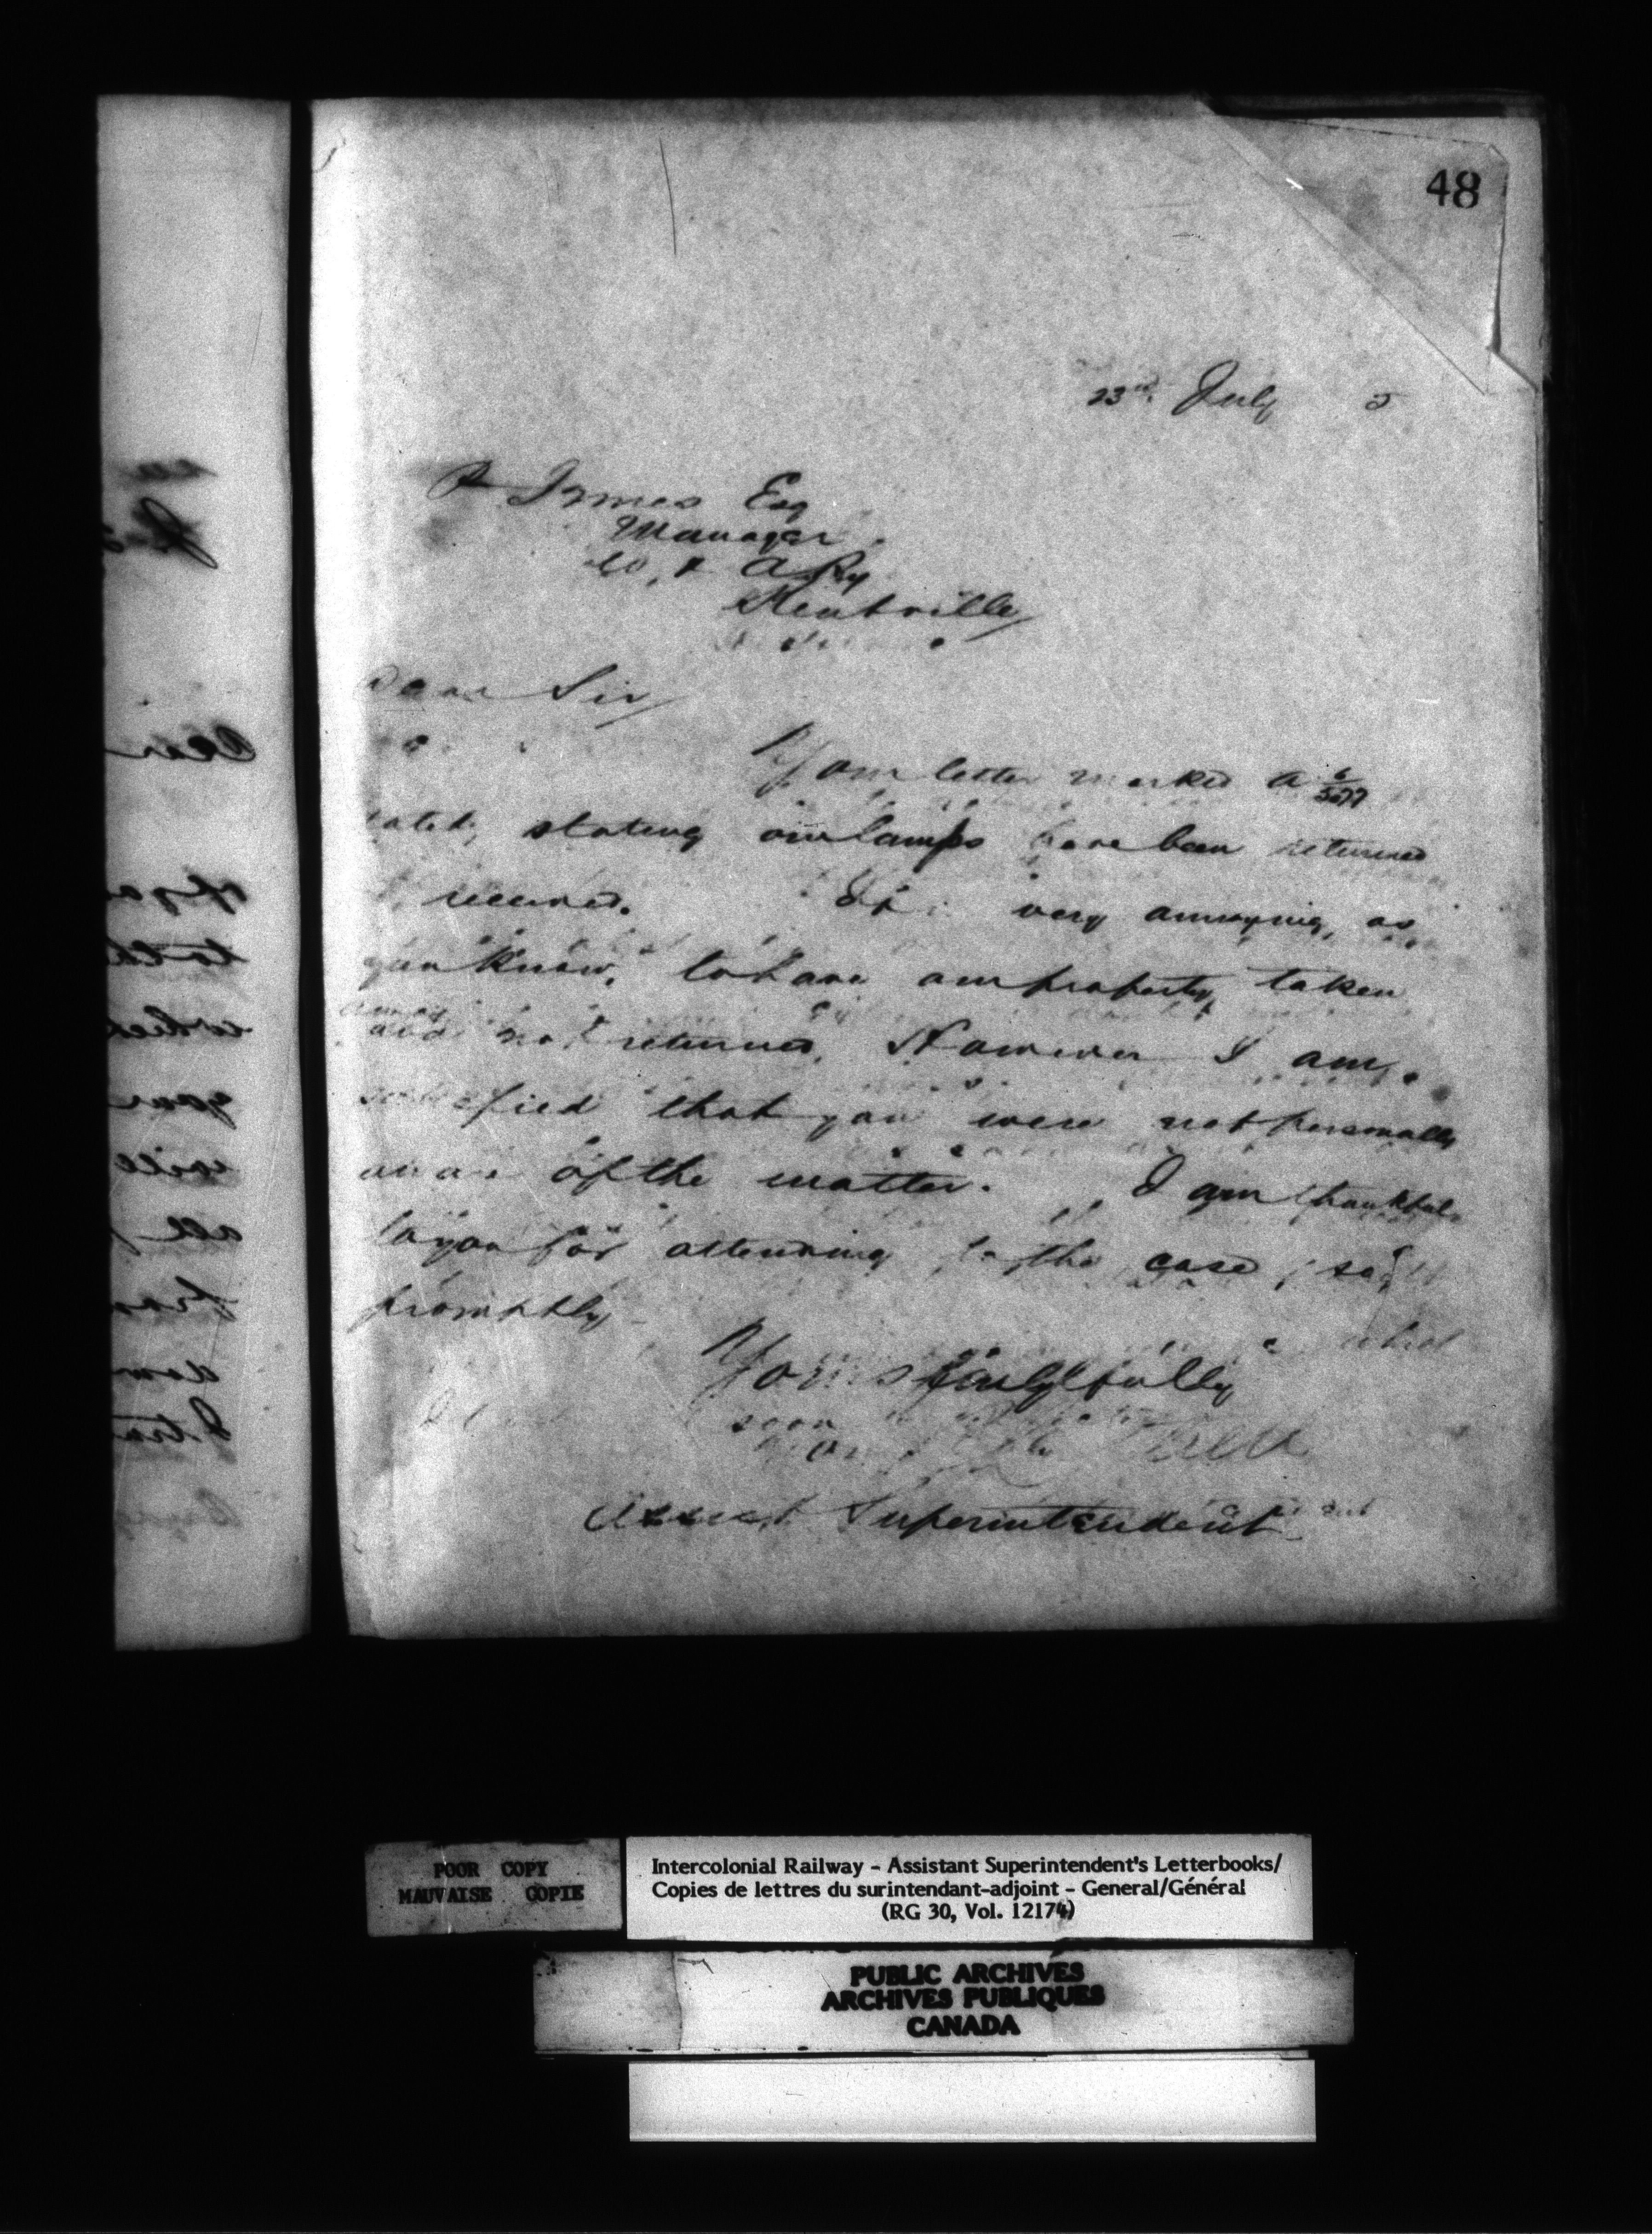 48
23rd July 5
P Innes Esq
Manager
W. & A Ry
Kentville
Dear Sir
Your letter marked A 6/5077
stating our lamps have been returned
received. It is very annoying, as
you know, to have our property taken
away
and not returned. However I am
satisfied that you were not personally
aware of the matter. I am thankful
to you for attending to the case so
promptly
Yours faithfully
Assist Superintendent
POOR COPY
MAUVAISE COPIE
Intercolonial Railway - Assistant Superintendent's Letterbooks/
Copies de lettres du surintendant-adjoint - General/Général
(RG 30, Vol. 12174)
PUBLIC ARCHIVES
ARCHIVES PUBLIQUES
CANADA